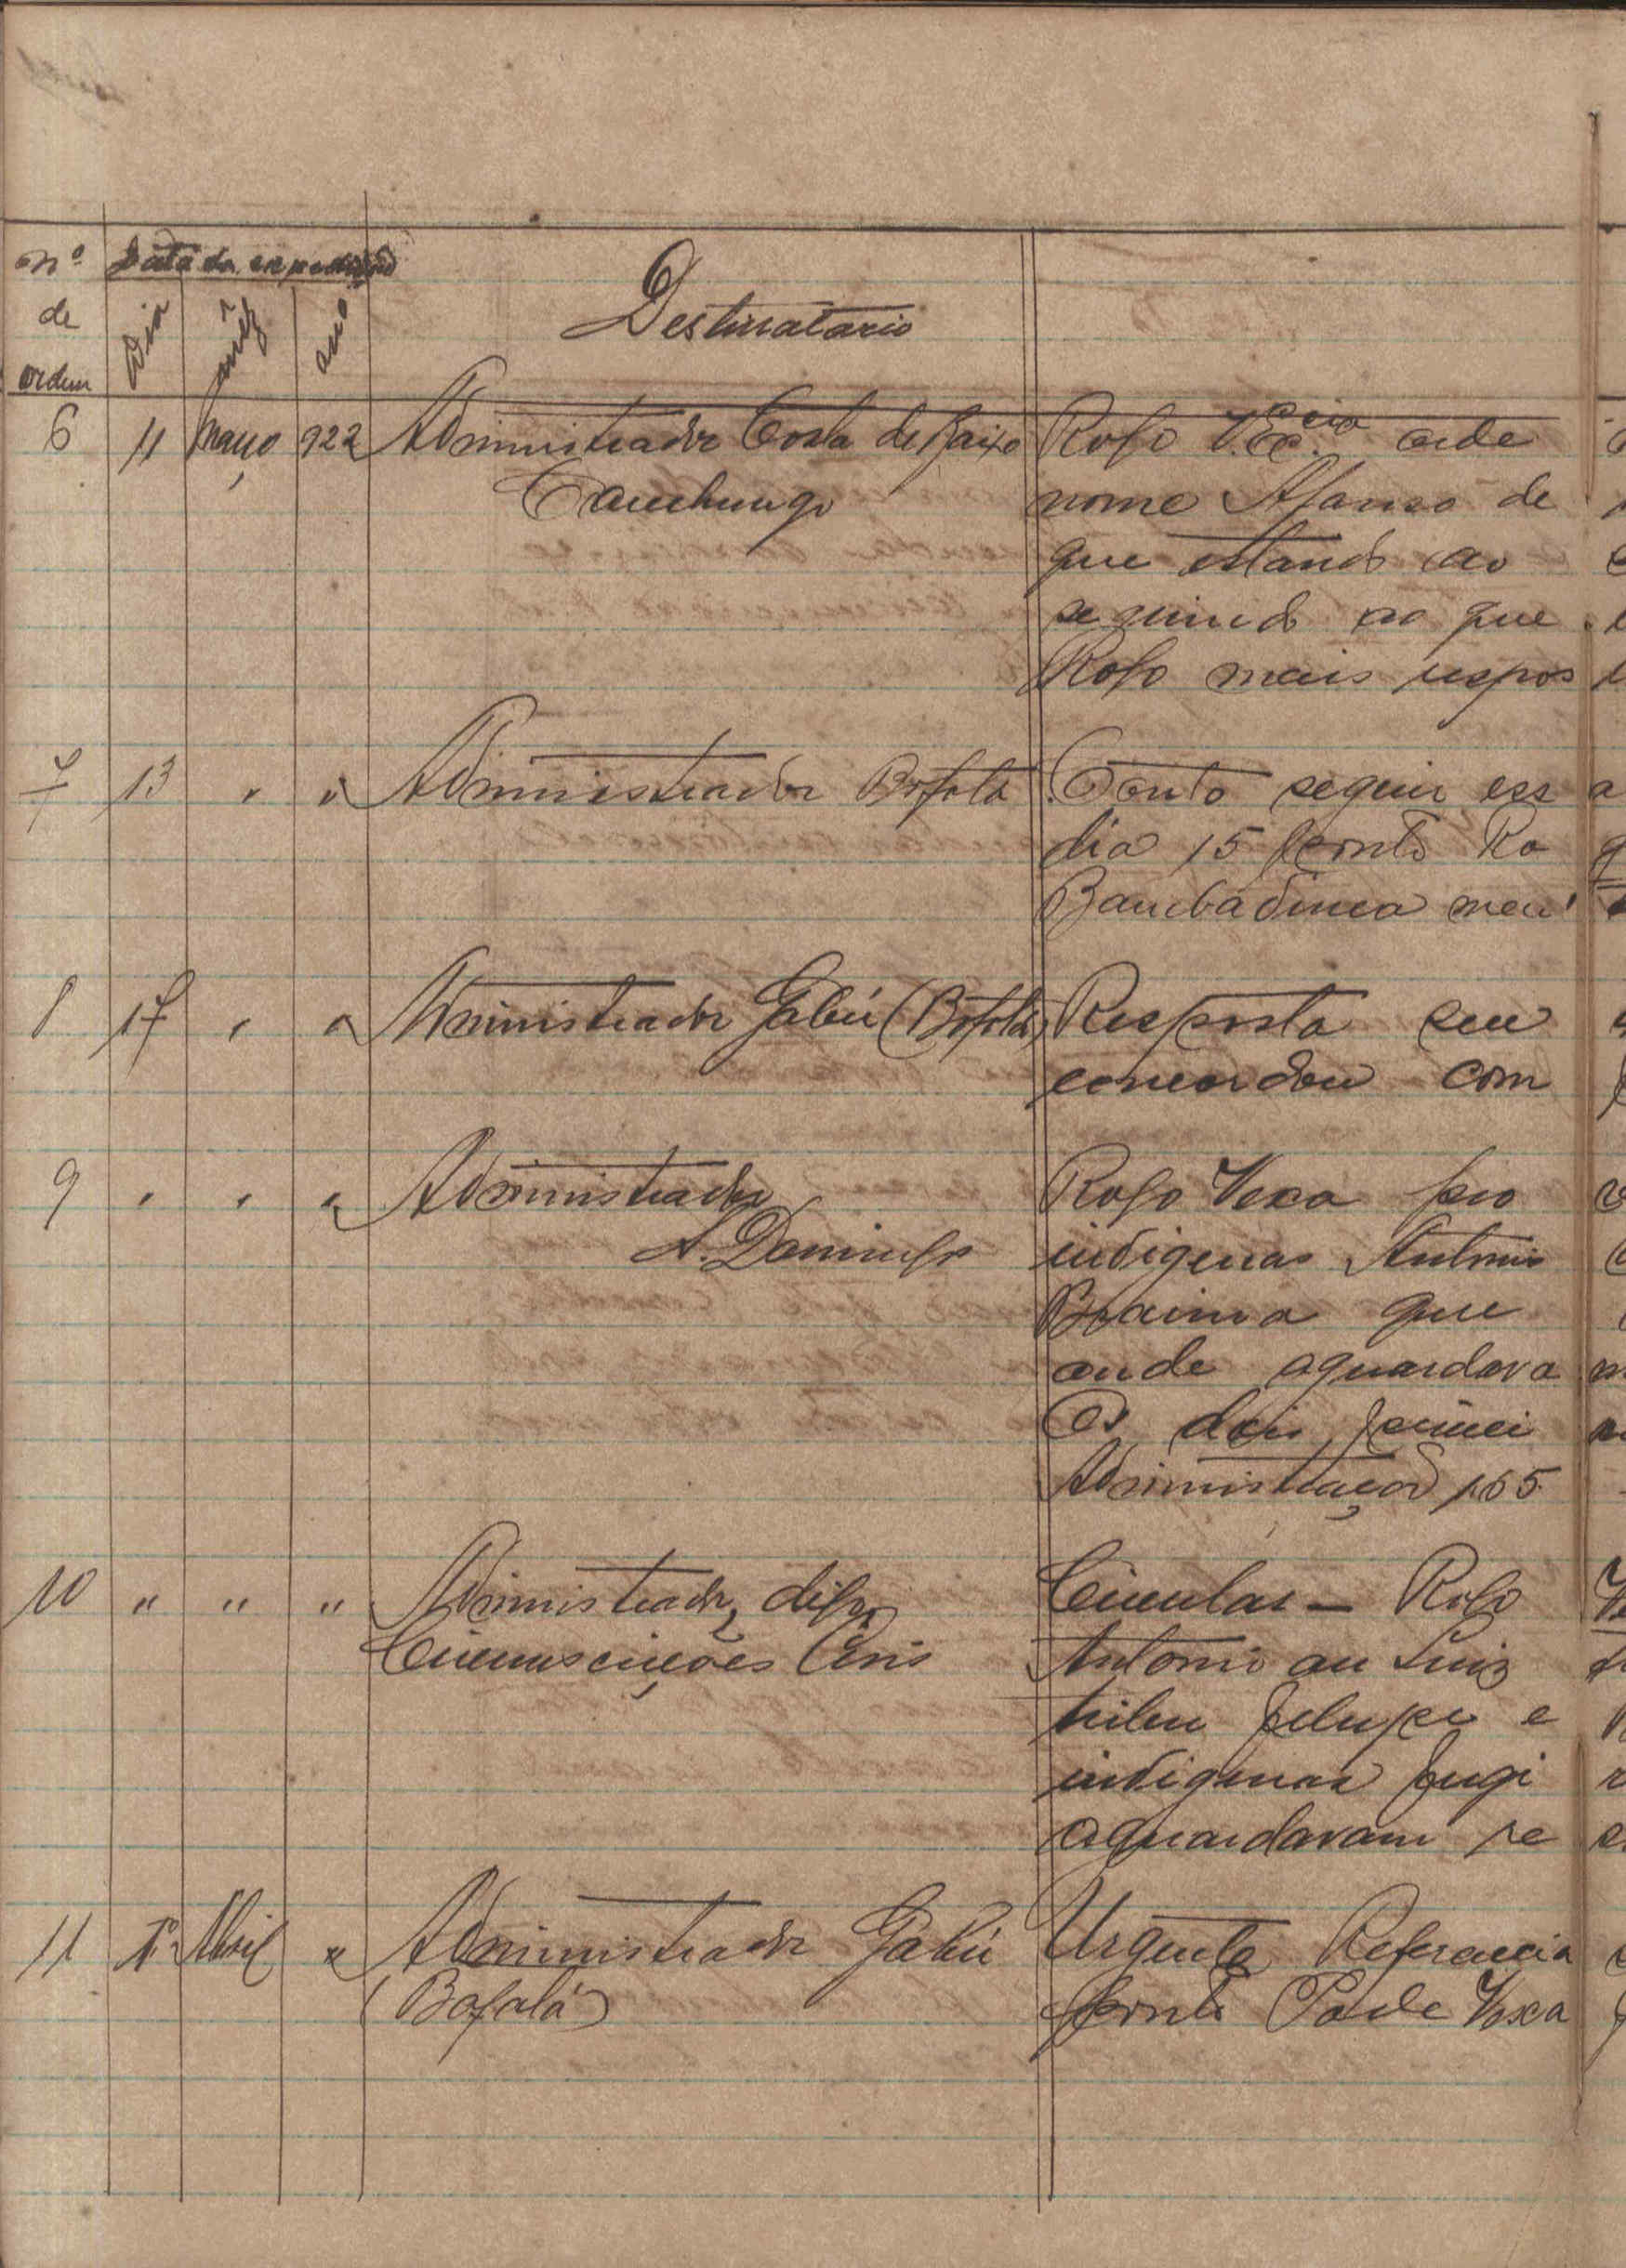 nº Data da expedição
de Dia mêz ano Destinatario
ordem
6 11 Março 922 Administrador Costa de Baixo Rogo V. Ex.cia orde
Canchungo nome Afonso de
que estando ao
seguindo ao que
Rogo mais respos
7 13 " " Administrador Bafatá Conto seguir ess
dia 15 ponto Ro
Bambadinca meu
8 17 " " Administrador Gabú (Bafatá) Resposta seu
concordou com
9 " " " Administrador Rogo Vexa pro
S. Domingos indigenas Antonio
Braima que
onde aguardava
Os dois primei
Administração 165
10 " " " Administrador, difr. Circular — Rogo
Circunscrições Civis Antonio ou Luiz
tribu felupe e
indigenas fugi
aguardavam re
11 1º Abril " Administrador Gabú Urgente Referencia
(Bafatá) ponto Pode Vexa